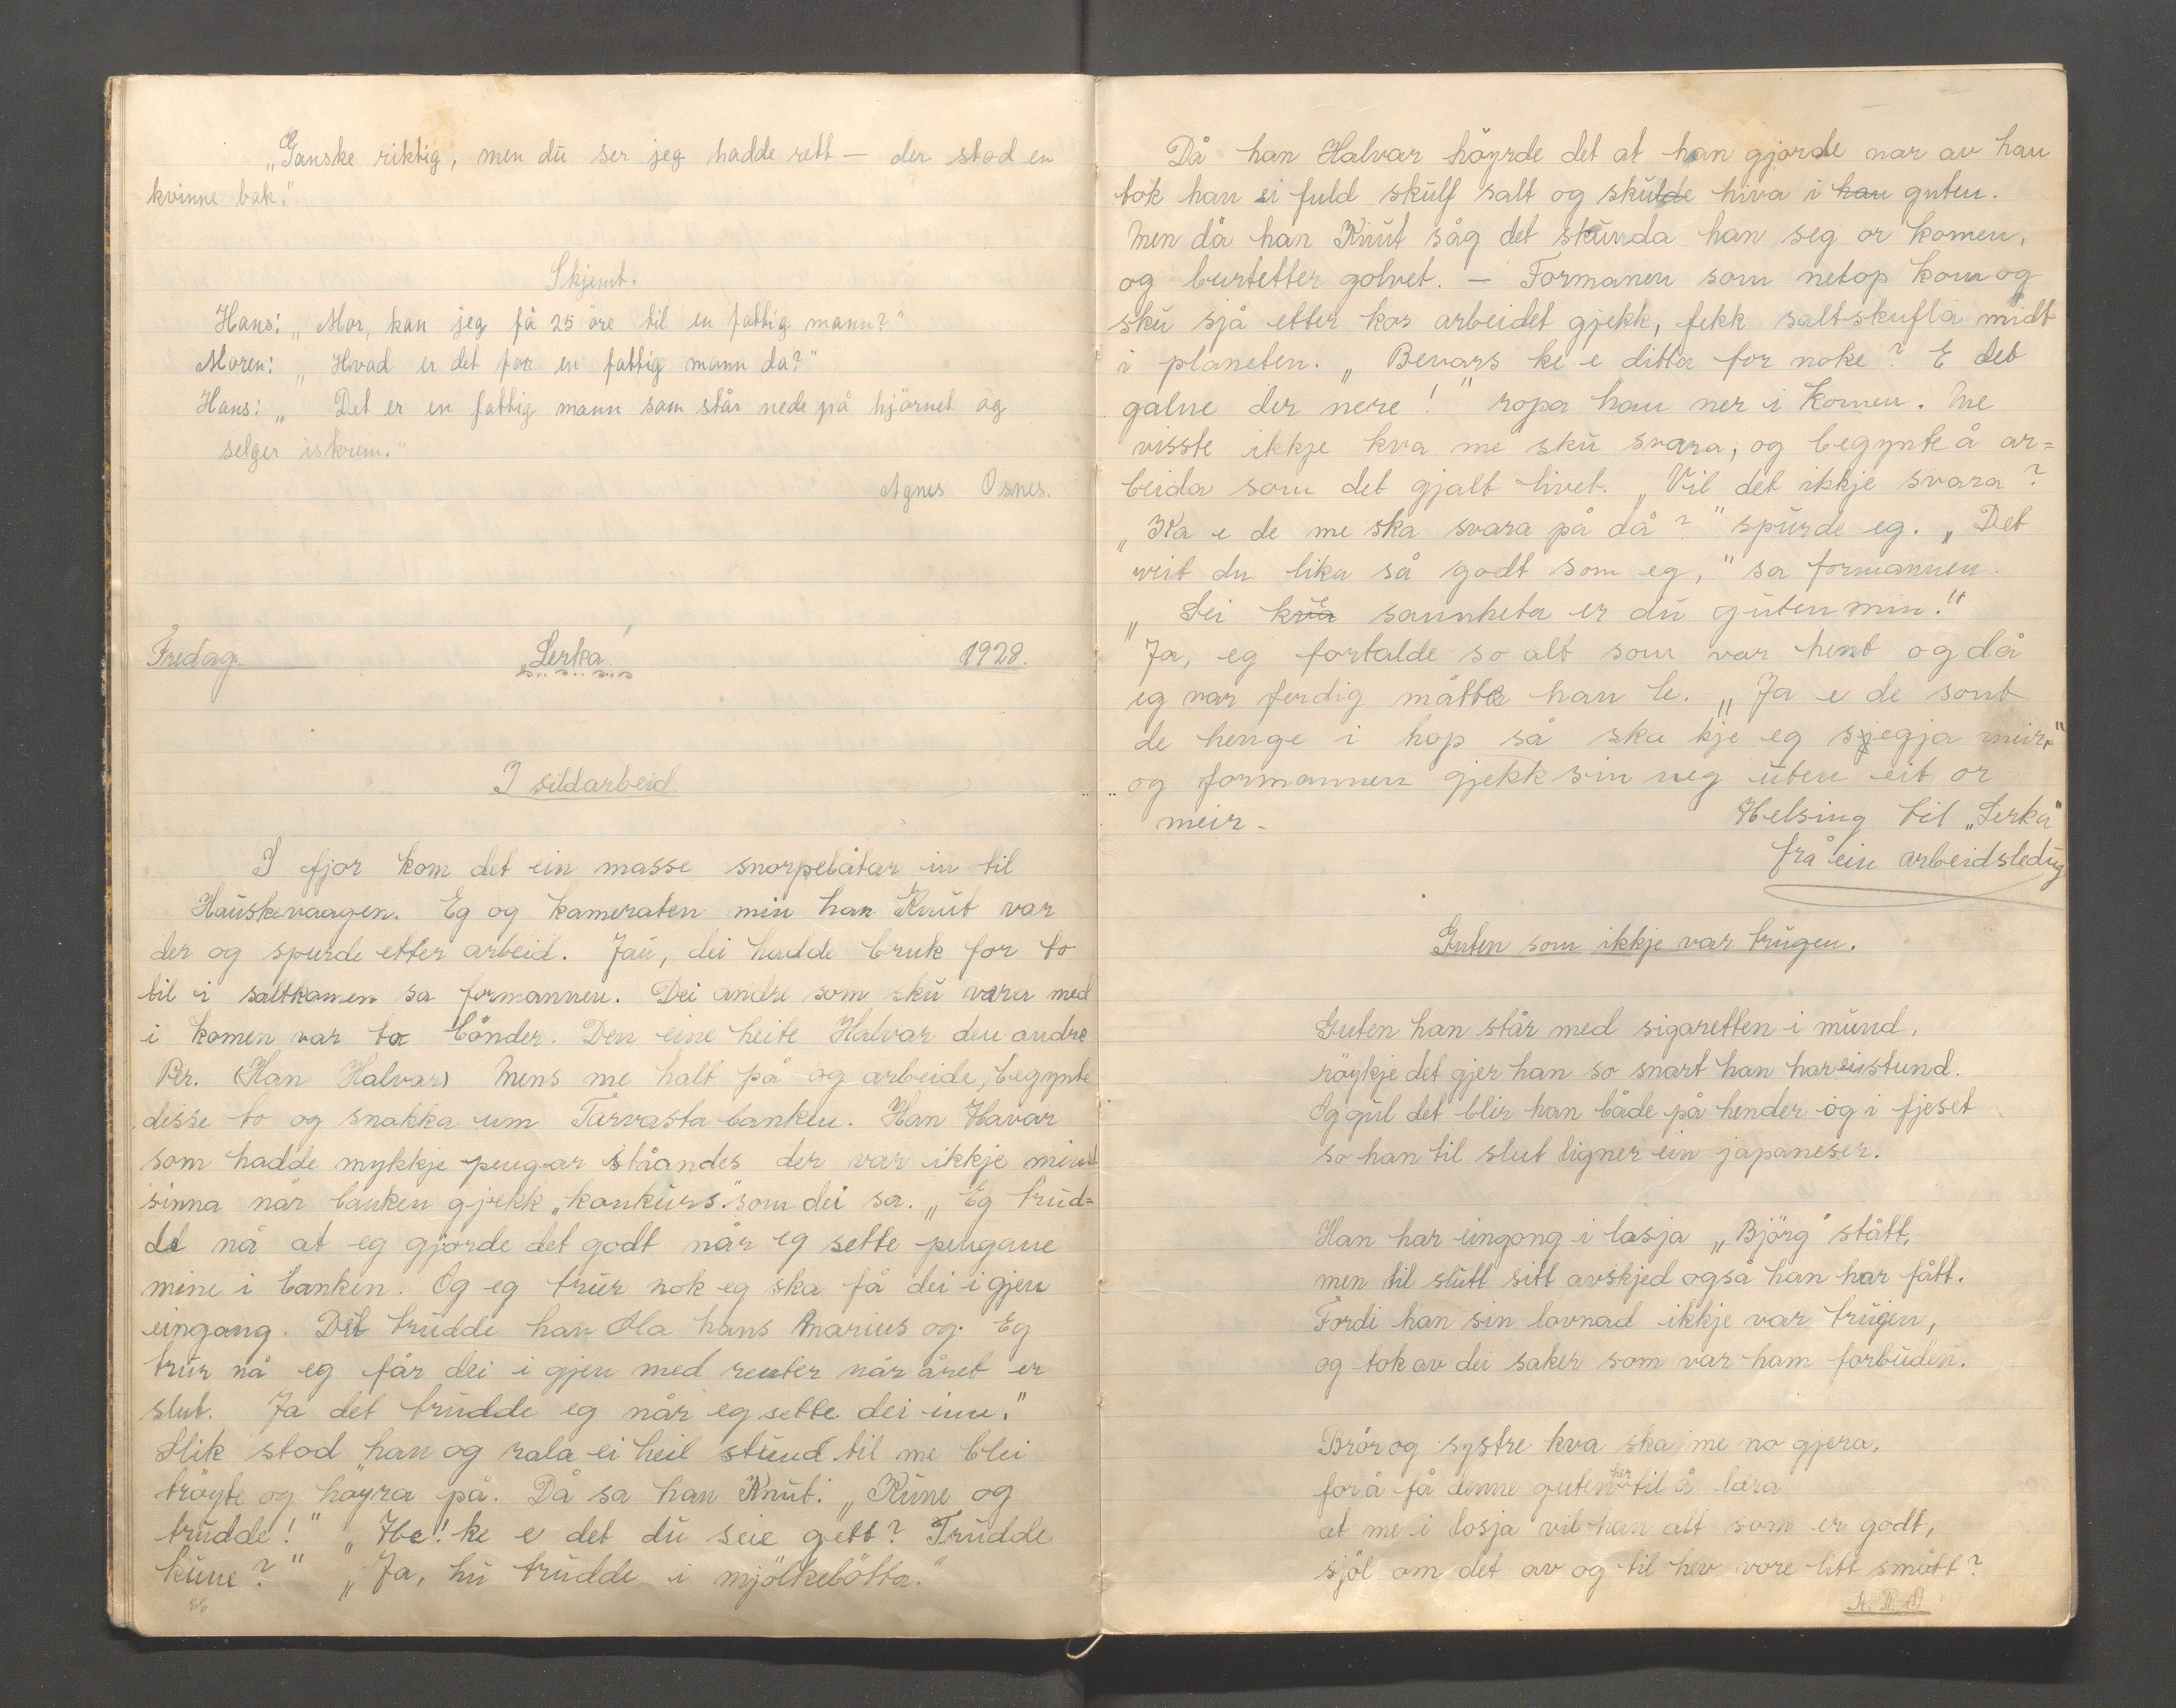 „Ganske riktig, men du ser jeg hadde rett — der stod en
kvinne bak."
Skjemt.
Hans: „Mor, kan jeg få 25 öre til en fattig mann?"
Moren: „Hvad er det for en fattig mann da?"
Hans: „Det er en fattig mann som står nede på hjörnet og
selger iskrem."
Agnes Osnes.
Fredag. „Lerka" 1928.
I sildarbeid.
I fjor kom det ein masse snorpebåtar in til
Hauskevaagen. Eg og kameraten min han Knut var
der og spurde etter arbeid. Jau, dei hadde bruk for to
til i saltkomen sa formannen. Dei andre som sku vera med
i komen var to bönder. Den eine heite Halvar den andre
Per. (Han Halvar) Mens me halt på og arbeide, begynte
disse to og snakka um Tarvasta banken. Han Havar
som hadde mykkje pengar ståandes der var ikkje minst
sinna når banken gjekk „konkurs" som dei sa. „Eg trud=
de nå at eg gjorde det godt når eg sette pengane
mine i banken. Og eg trur nok eg ska få dei i gjen
eingang. Det trudde han Ola hans Marius og. Eg
trur nå eg får dei i gjen med renter når året er
slut. Ja det trudde eg når eg sette dei inn."
Slik stod han og rala ei heil stund til me blei
tröyte og höyra på. Då sa han Knut: „Kune og
trudde!" „He! ke e det du seie gett? Trudde
kune?" „Ja, hu trudde i mjölkebötta."
Då han Halvar höyrde det at han gjorde nar av han
tok han ei fuld skulf salt og skulde hiva i han guten.
Men då han Knut såg det skunda han seg or komen,
og burtetter golvet. — Formanen som netop kom og
sku sjå etter kos arbeidet gjekk, fekk saltskufla midt
i planeten. „Bevars ke e ditta for noke? E det
galne der nere!" ropa han ner i komen. Me
visste ikkje kva me sku svara, og begynte å ar=
beida som det gjalt livet. „Vil det ikkje svara?
„Ka e de me ska svara på då?" spurde eg. „Det
veit du lika så godt som eg," sa formannen.
„Sei kva sannheta er du guten min."
Ja, eg fortalde so alt som var hent og då
eg var ferdig måtte han le. „Ja e de sont
de henge i hop så ska kje eg sjegja meir"
og formannen gjekk sin veg uten eit or
meir -
Helsing til „Lerka"
frå ein arbeidsledug
Guten som ikkje var trugen.
Guten han står med sigaretten i mund,
röykje det gjer han so snart han har ei stund.
Og gul det blir han både på hender og i fjeset
so han til slut ligner ein japaneser.
Han har eingong i losja „Björg" stått,
men til slutt sitt avskjed også han har fått.
Fordi han sin lovnad ikkje var trugen,
og tok av dei saker som var ham forbuden.
Brör og systre kva ska me no gjera,
for å få denne guten her til å læra
at me i losja vil han alt som er godt,
sjöl om det av og til hev vore litt smått?